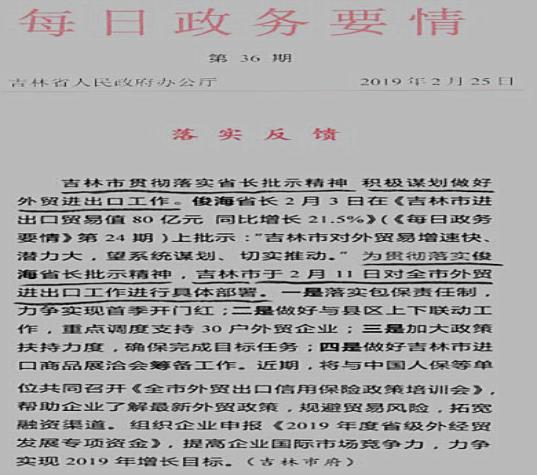 每日政务要情
第 36 期
吉林省人民政府办公厅 2019年2月25日
落实反馈
吉林市贯彻落实省长批示精神 积极谋划做好
外贸进出口工作。俊海省长2月3日在《吉林市进
出口贸易值80亿元 同比增长21.5%》(《每日政务
要情》第24期)上批示:“吉林市对外贸易增速快、
潜力大,望系统谋划、切实推动。”为贯彻落实俊
海省长批示精神,吉林市于2月11日对全市外贸
进出口工作进行具体部署。一是落实包保责任制,
力争实现首季开门红;二是做好与县区上下联动工
作,重点调度支持30户外贸企业;三是加大政策
扶持力度,确保完成目标任务;四是做好吉林市进
口商品展洽会筹备工作。近期,将与中国人保等单
位共同召开《全市外贸出口信用保险政策培训会》,
帮助企业了解最新外贸政策,规避贸易风险,拓宽
融资渠道。组织企业申报《2019年度省级外经贸
发展专项资金》,提高企业国际市场竞争力,力争
实现2019年增长目标。(吉林市府)